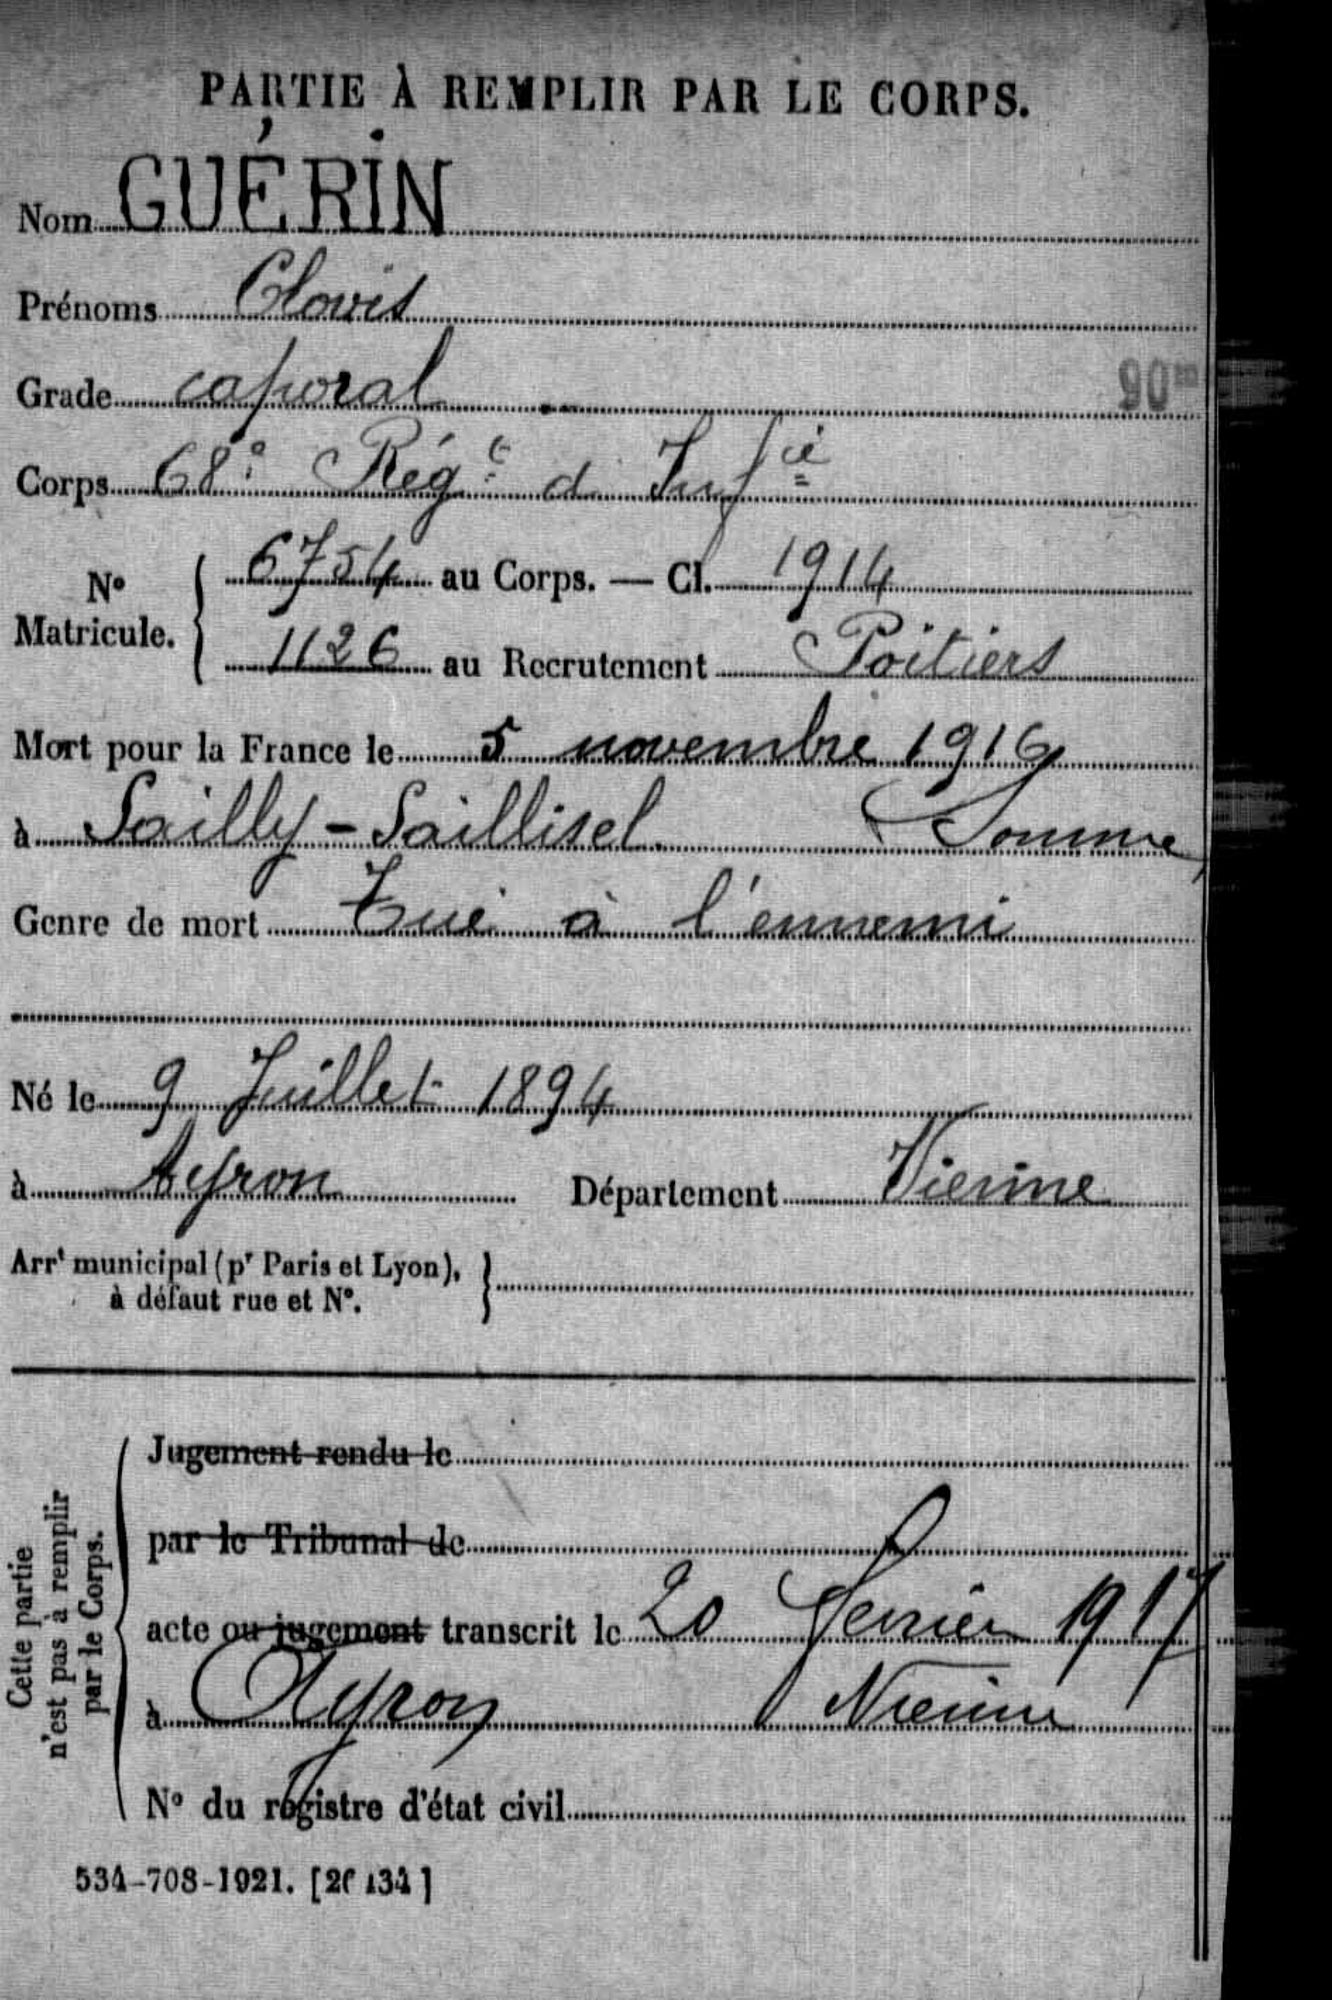 PARTIE À REMPLIR PAR LE CORPS.
Nom GUÉRIN
Prénoms Clovis
Grade caporal
90
Corps 68e Régt d Infie
N° Matricule. 6754 au Corps. — Cl. 1914
1126 au Recrutement Poitiers
Mort pour la France le 5 novembre 1916
à Sailly-Saillisel (Somme)
Genre de mort Tué à l'ennemi
Né le 9 Juillet 1894
à Ayron Département Vienne
Arrt municipal (pr Paris et Lyon),
à défaut rue et N°.
Cette partie
n'est pas à remplir
par le Corps.
Jugement rendu le
par le Tribunal de
acte ou jugement transcrit le 20 février 1917
à Ayron Vienne
N° du registre d'état civil
534-708-1921.